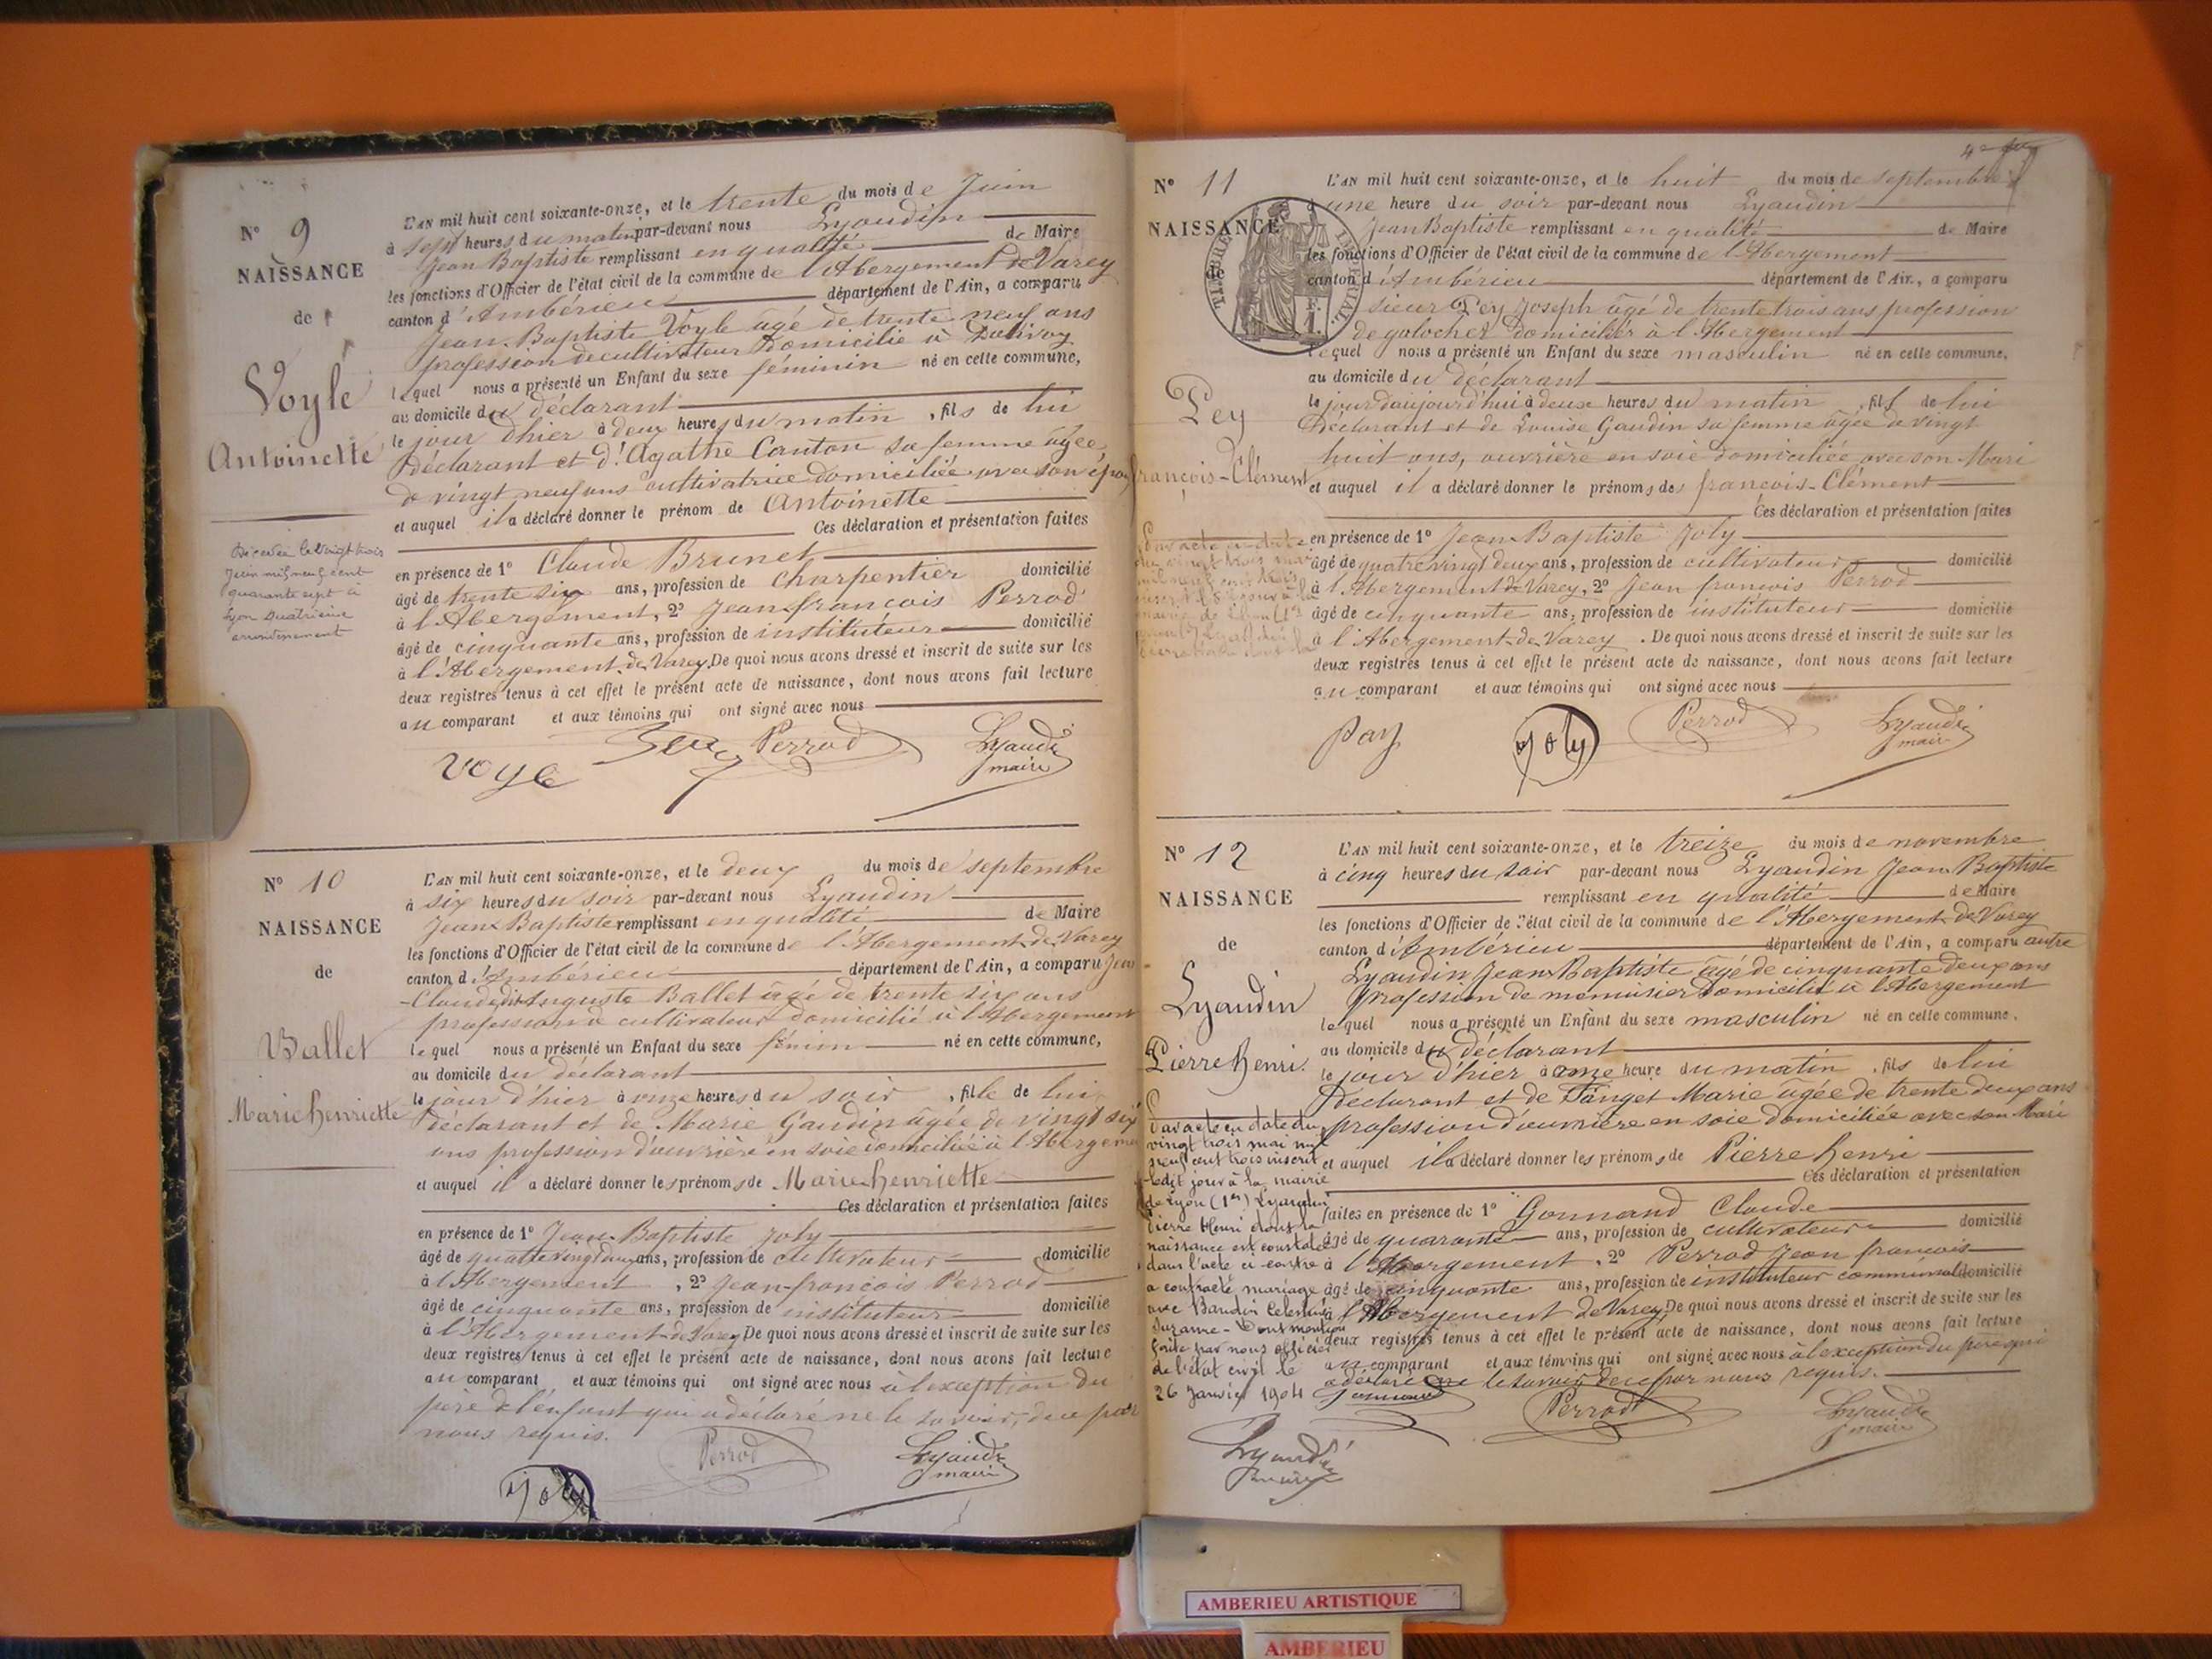 N° 9
NAISSANCE
de
Voyle
Antoinette
Décédée le vingt trois
Juin mil neuf cent
quarante sept à
Lyon quatrième
arrondissement
L'AN mil huit cent soixante-onze, et le trente du mois de Juin
à sept heures du matin par-devant nous Lyaudin
Jean Baptiste remplissant en qualité de Maire
les fonctions d'Officier de l'état civil de la commune de l'Abergement de Varey
canton d'Ambérieu département de l'Ain, a comparu
Jean-Baptiste Voyle âgé de trente neuf ans
profession de cultivateur domicilié à
lequel nous a présenté un Enfant du sexe féminin né en cette commune,
au domicile du déclarant
le jour d'hier à deux heures du matin, fils de lui
Déclarant et d'Agathe Canton sa femme âgée
de vingt neuf ans cultivatrice domiciliée avec son époux
et auquel il a déclaré donner le prénom de Antoinette
Ces déclaration et présentation faites
en présence de 1° Claude Brunet
âgé de trente six ans, profession de charpentier domicilié
à l'Abergement, 2° Jean-françois Perrod
âgé de cinquante ans, profession de instituteur domicilié
à l'Abergement de Varey De quoi nous avons dressé et inscrit de suite sur les
deux registres tenus à cet effet le présent acte de naissance, dont nous avons fait lecture
au comparant et aux témoins qui ont signé avec nous
Voyle Perrod Lyaudin
maire
N° 10
NAISSANCE
de
Ballet
Marie henriette
L'AN mil huit cent soixante-onze, et le deux du mois de septembre
à six heures du soir par-devant nous Lyaudin
Jean-Baptiste remplissant en qualité de Maire
les fonctions d'Officier de l'état civil de la commune de l'Abergement de Varey
canton d'Ambérieu département de l'Ain, a comparu Jean
-Claude dit Auguste Ballet âgé de trente six ans
profession de cultivateur domicilié à l'Abergement
lequel nous a présenté un Enfant du sexe féminin né en cette commune,
au domicile du déclarant
le jour d'hier à onze heures du soir, fille de lui
déclarant et de Marie Gaudin âgée de vingt six
ans profession d'ouvrière en soie domiciliée à l'Abergement
et auquel il a déclaré donner les prénoms de Marie henriette
Ces déclaration et présentation faites
en présence de 1° Jean-Baptiste Joly
âgé de quatre vingt deux ans, profession de cultivateur domicilié
à l'Abergement, 2° Jean-françois Perrod
âgé de cinquante ans, profession de instituteur domicilié
à l'Abergement de Varey De quoi nous avons dressé et inscrit de suite sur les
deux registres tenus à cet effet le présent acte de naissance, dont nous avons fait lecture
au comparant et aux témoins qui ont signé avec nous à l'exception du
père de l'enfant qui a déclaré ne le savoir, de ce par
nous requis.
Joly Perrod Lyaudin
maire
N° 11
NAISSANCE
de
TIMBRE IMPERIAL
Pey
françois-Clément
L'AN mil huit cent soixante-onze, et le huit du mois de septembre
à une heure du soir par-devant nous Lyaudin
Jean Baptiste remplissant en qualité de Maire
les fonctions d'Officier de l'état civil de la commune de l'Abergement
canton d'Ambérieu département de l'Ain, a comparu
sieur Pey Joseph âgé de trente trois ans profession
de galocher domicilié à l'Abergement
lequel nous a présenté un Enfant du sexe masculin né en cette commune,
au domicile du déclarant
le jour d'aujourd'hui à deux heures du matin, fils de lui
Déclarant et de Louise Gaudin sa femme âgée de vingt
huit ans, ouvrière en soie domiciliée avec son Mari
et auquel il a déclaré donner le prénoms de françois-Clément
Ces déclaration et présentation faites
en présence de 1° Jean-Baptiste Joly
âgé de quatre vingt deux ans, profession de cultivateur domicilié
à l'Abergement de Varey, 2° Jean françois Perrod
âgé de cinquante ans, profession de instituteur domicilié
à l'Abergement de Varey. De quoi nous avons dressé et inscrit de suite sur les
deux registres tenus à cet effet le présent acte de naissance, dont nous avons fait lecture
au comparant et aux témoins qui ont signé avec nous
Pay Joly Perrod Lyaudin
maire
N° 12
NAISSANCE
de
Lyaudin
Pierre henri
Par acte en date du
vingt trois mai mil
neuf cent trois inscrit
ledit jour à la mairie
de Lyon (1er) Lyaudin
Pierre Henri dont la
naissance est constatée
dans l'acte ci-contre
a contracté mariage
avec Baudin Célestine
Suzanne - Dont mention
faite par nous officier
de l'état civil le
26 Janvier 1904
Lyaudin
maire
L'AN mil huit cent soixante-onze, et le treize du mois de novembre
à cinq heures du soir par-devant nous Lyaudin Jean Baptiste
remplissant en qualité de Maire
les fonctions d'Officier de l'état civil de la commune de l'Abergement de Varey
canton d'Ambérieu département de l'Ain, a comparu autre
Lyaudin Jean-Baptiste âgé de cinquante deux ans
profession de menuisier domicilié à l'Abergement
lequel nous a présenté un Enfant du sexe masculin né en cette commune,
au domicile du déclarant
le jour d'hier à onze heure du matin, fils de lui
Déclarant et de Tanget Marie âgée de trente deux ans
profession d'ouvrière en soie domiciliée avec son Mari
et auquel il a déclaré donner les prénoms de Pierre henri
Ces déclaration et présentation
faites en présence de 1° Gonnand Claude
âgé de quarante ans, profession de cultivateur domicilié
à l'Abergement, 2° Perrod Jean françois
âgé de cinquante ans, profession de instituteur communal domicilié
à l'Abergement de Varey De quoi nous avons dressé et inscrit de suite sur les
deux registres tenus à cet effet le présent acte de naissance, dont nous avons fait lecture
au comparant et aux témoins qui ont signé avec nous à l'exception du père qui
a déclaré ne le savoir de ce par nous requis.
Gonnand Perrod Lyaudin
maire
AMBERIEU ARTISTIQUE
AMBERIEU